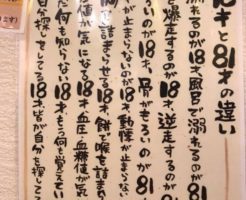 8才と81才の違い
溺れるのが18才、風呂で溺れるのが81
を爆走するのが18才、逆走するのが8
ろいのが18才、骨がもろいのが81
が止まらないのが18才、動悸が止まらない
を詰まらせる18才、餅で喉を詰ま
値が気になる18才、血圧・血糖値が気
だ何も知らない18才、もう何も覚えてい
探しをしてる18才、皆が自分を探してる
ます)